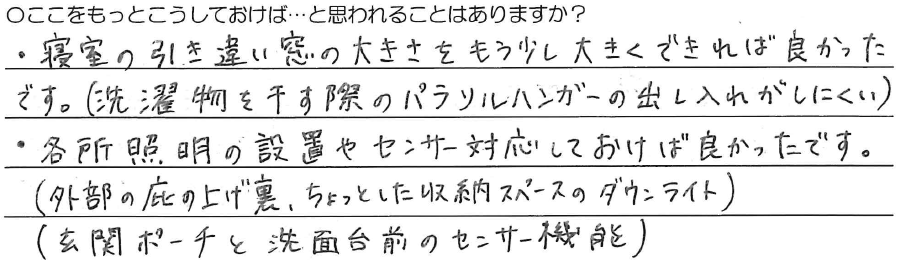 ○ここをもっとこうしておけば…と思われることはありますか？
・寝室の引き違い窓の大きさをもう少し大きくできれば良かった
です。(洗濯物を干す際のパラソルハンガーの出し入れがしにくい)
・各所照明の設置やセンサー対応しておけば良かったです。
(外部の庇の上げ裏、ちょっとした収納スペースのダウンライト)
(玄関ポーチと洗面台前のセンサー機能)